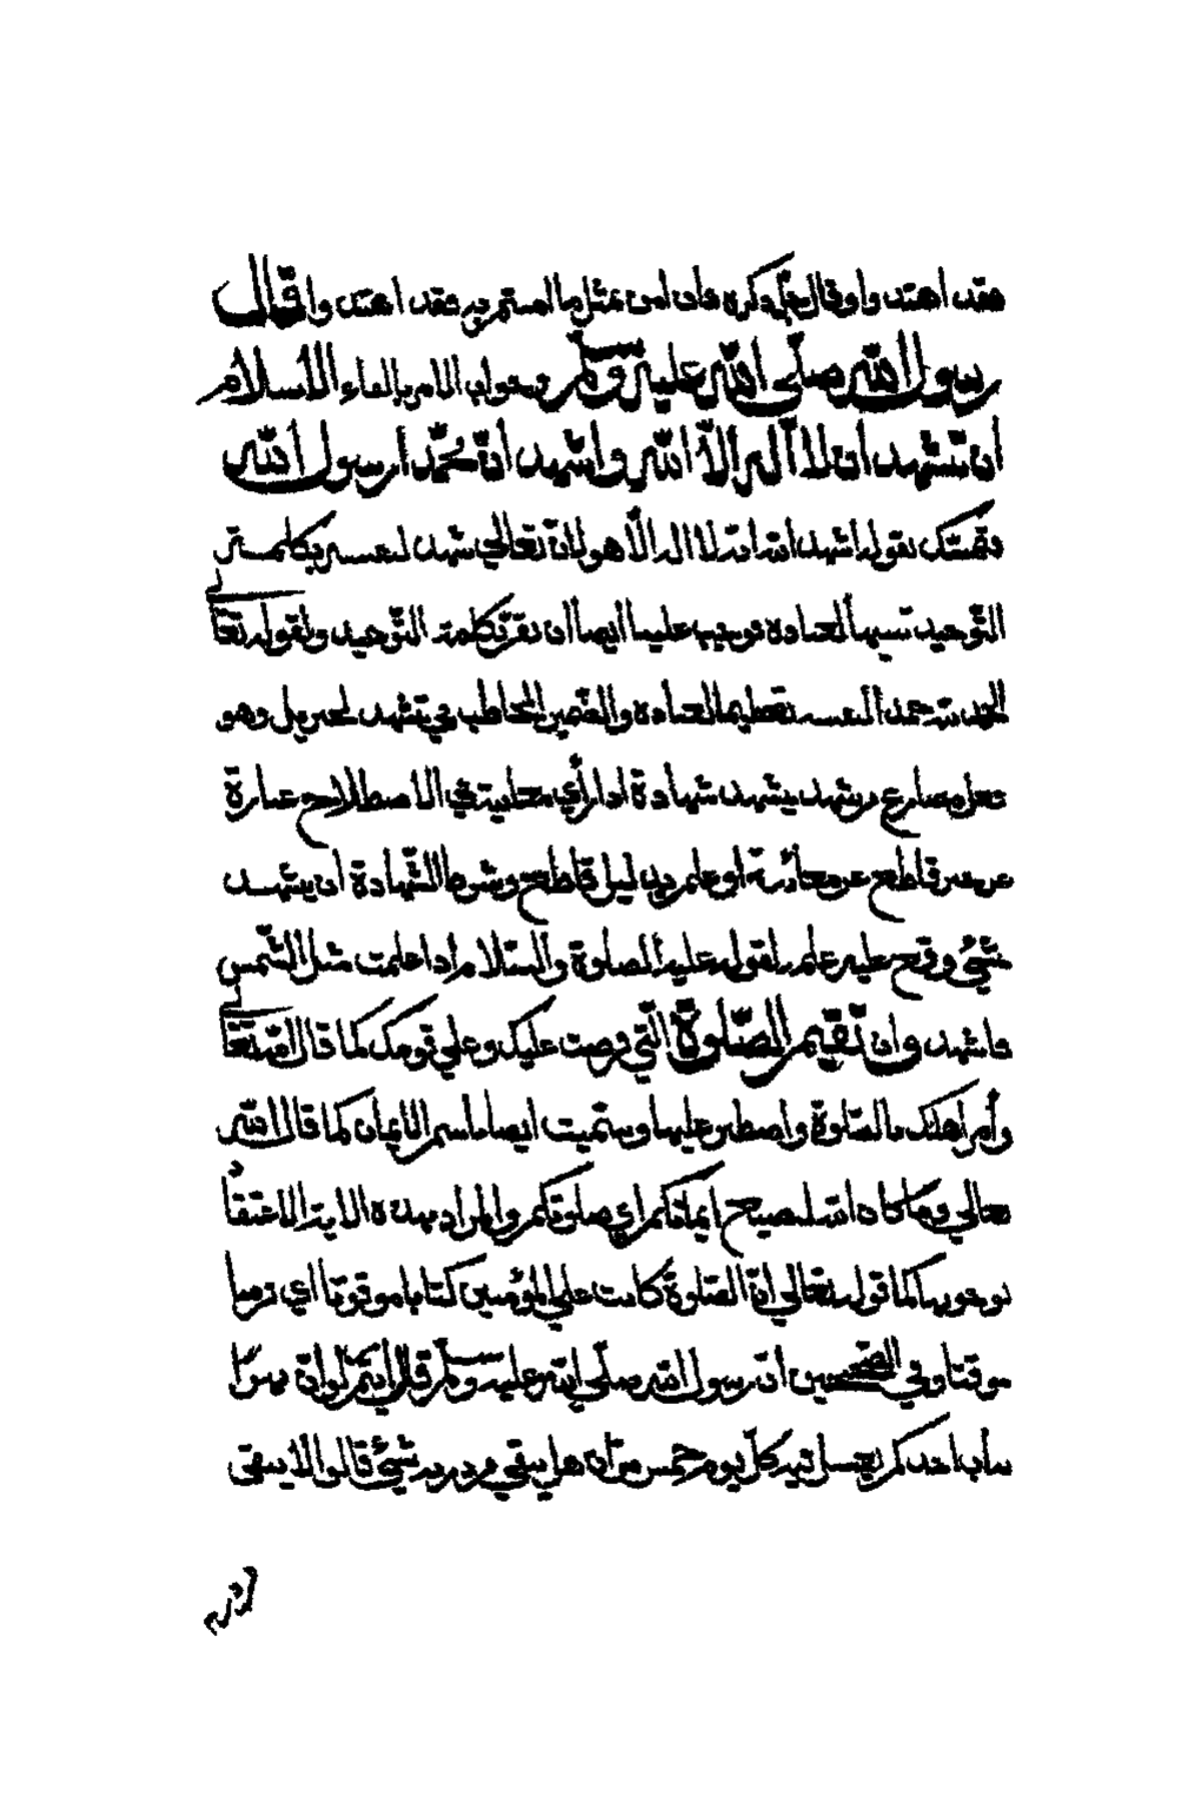 فقد اهتدوا وقال جل ذكره فان امن بمثل ما امنتم به فقد اهتدوا قال
رسول الله صلّى الله عليه وسلّم وجواب الامر بالفاء الاسلام
أن تشهد أن لا اله الاّ الله واشهد أنّ محمّدا رسول الله
وتمسّك بقوله اشهد الله انه لا اله الاّ هو لانّ تعالي شهد لنفسه بكلمة
التّوحيد تنبيها لعباده توجب علينا ايضا ان نقرّ بكلمة التّوحيد ولقوله تعالي
الحمد لله حمدا لنفسه تعظيما لعباده والضمير المخاطب في تشهد لجبريل وهو
فعل مضارع من شهد يشهد شهادة اذا رأي معاينة في الاصطلاح عبارة
عن خبر قاطع عن معاينة أو علم بدليل قاطع وشرط الشّهادة أن يشهد
شيئ وقع عليه علمه لقوله عليه الصلوة والسّلام اذا علمت مثل الشّمس
فاشهد وان تقيم الصّلوة الّتي فرضت عليك وعلي قومك كما قال الله تعالي
وأمر اهلك بالصّلوة واصطبر عليها وسمّيت ايضا باسم الايمان كما قال الله
تعالي وما كان الله ليضيع ايمانكم اي صلوتكم والمراد بهذه الاية الاعتقاد
بوجوبها كما قوله تعالي انّ الصّلوة كانت علي المؤمنين كتابا موقوتا اي فرضا
موقتا وفي الصّحيحين أنّ رسول الله صلّى الله عليه وسلّم قال ارأيتم لو انّ نهرا
بباب احدكم يغتسل فيه كلّ يوم خمس مرّات هل يبقي من درنه شيئ قالوا لا يبقي